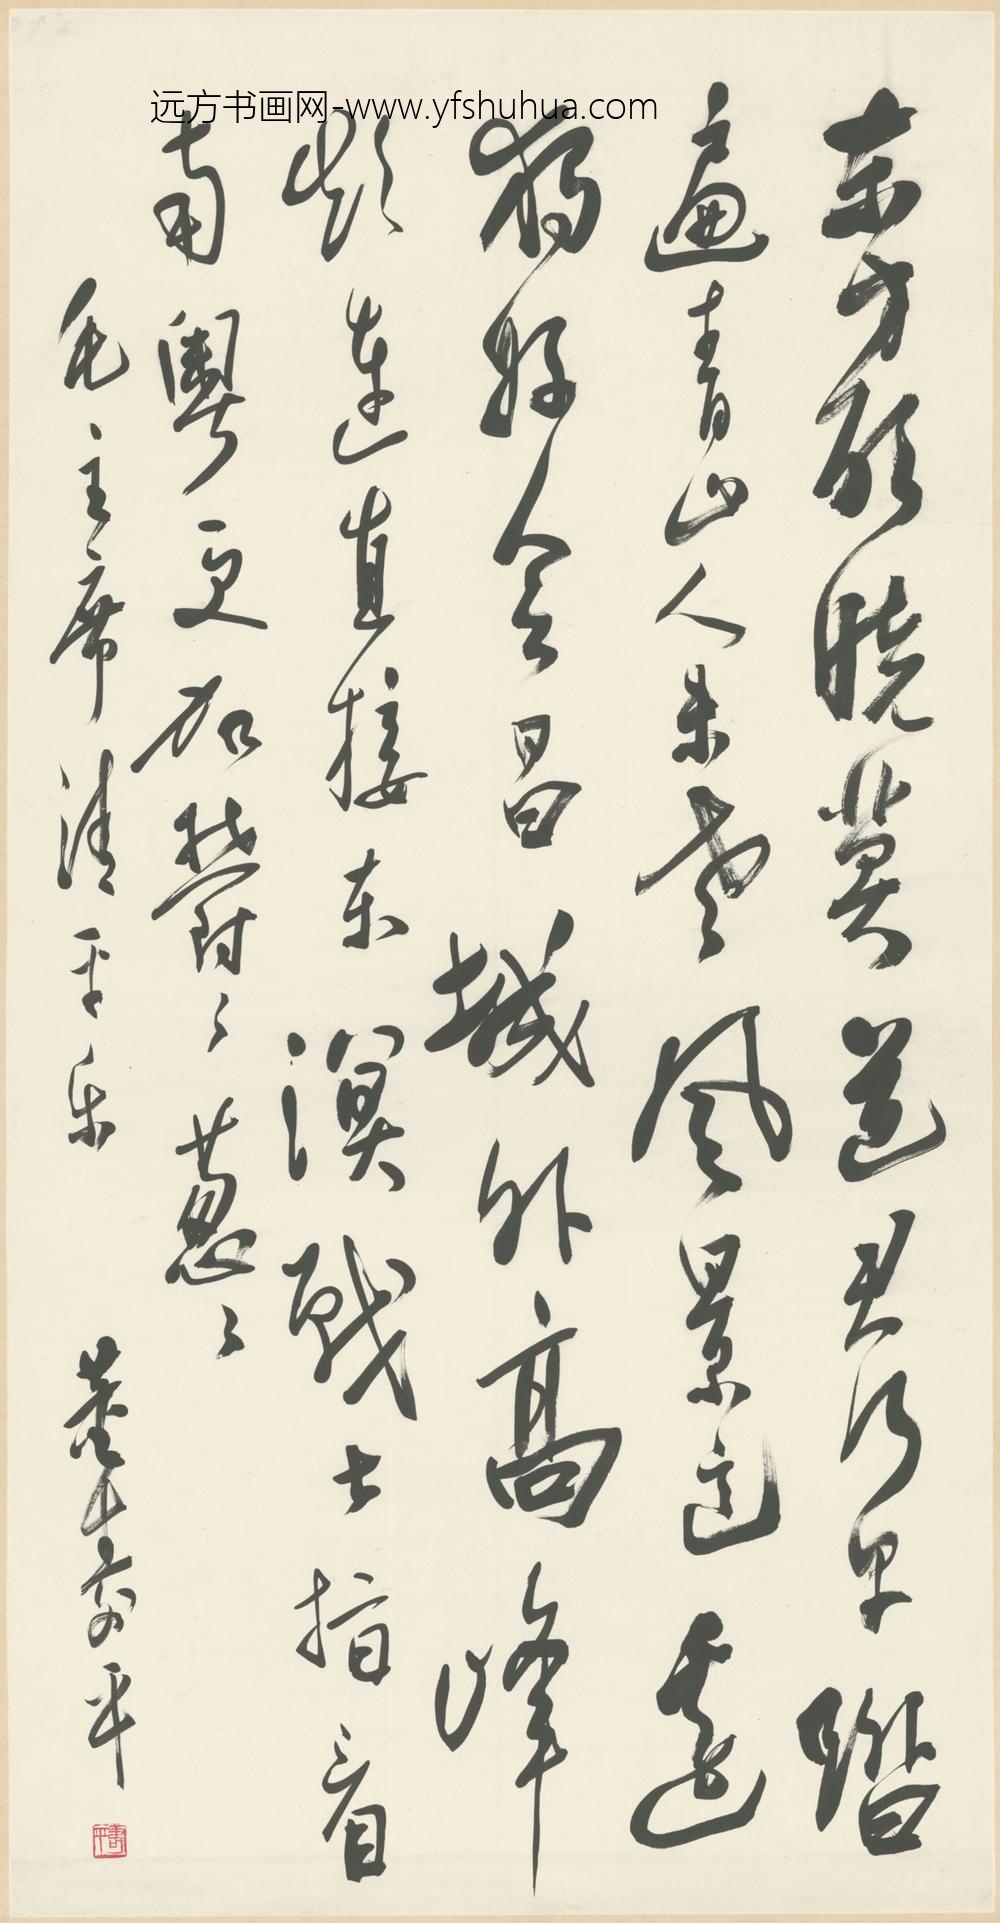 远方书画网-www.yfshuhua.com
东方欲晓莫道君行早踏
遍青山人未老风景这边
独好会昌城外高峰
颠连直接东溟战士指看
南粤更加郁々葱々
毛主席清平乐 董寿平